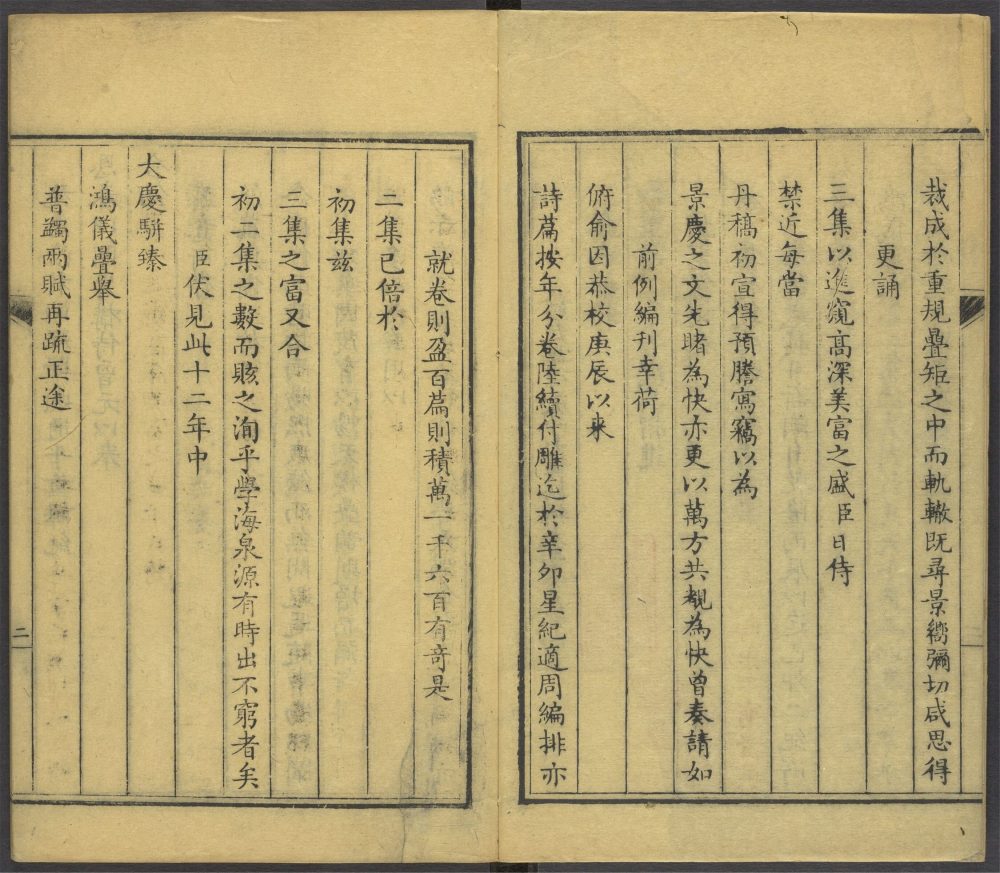 裁成於重規疊矩之中而軌轍既尋景嚮彌切咸思得
更誦
三集以進窺高深美富之盛臣日侍
禁近每當
丹稿初宣得預謄寫竊以為
景慶之文先睹為快亦更以萬方共覩為快曾奏請如
前例編刋幸荷
俯俞因恭校庚辰以来
詩篇按年分卷陸續付雕迄於辛卯星紀適周編排亦
就卷則盈百篇則積萬一千六百有奇是
二集已倍於
初集兹
三集之富又合
初二集之數而賅之洵乎學海泉源有時出不窮者矣
臣伏見此十二年中
大慶駢臻
鴻儀疊舉
普蠲兩賦再疏正途
二